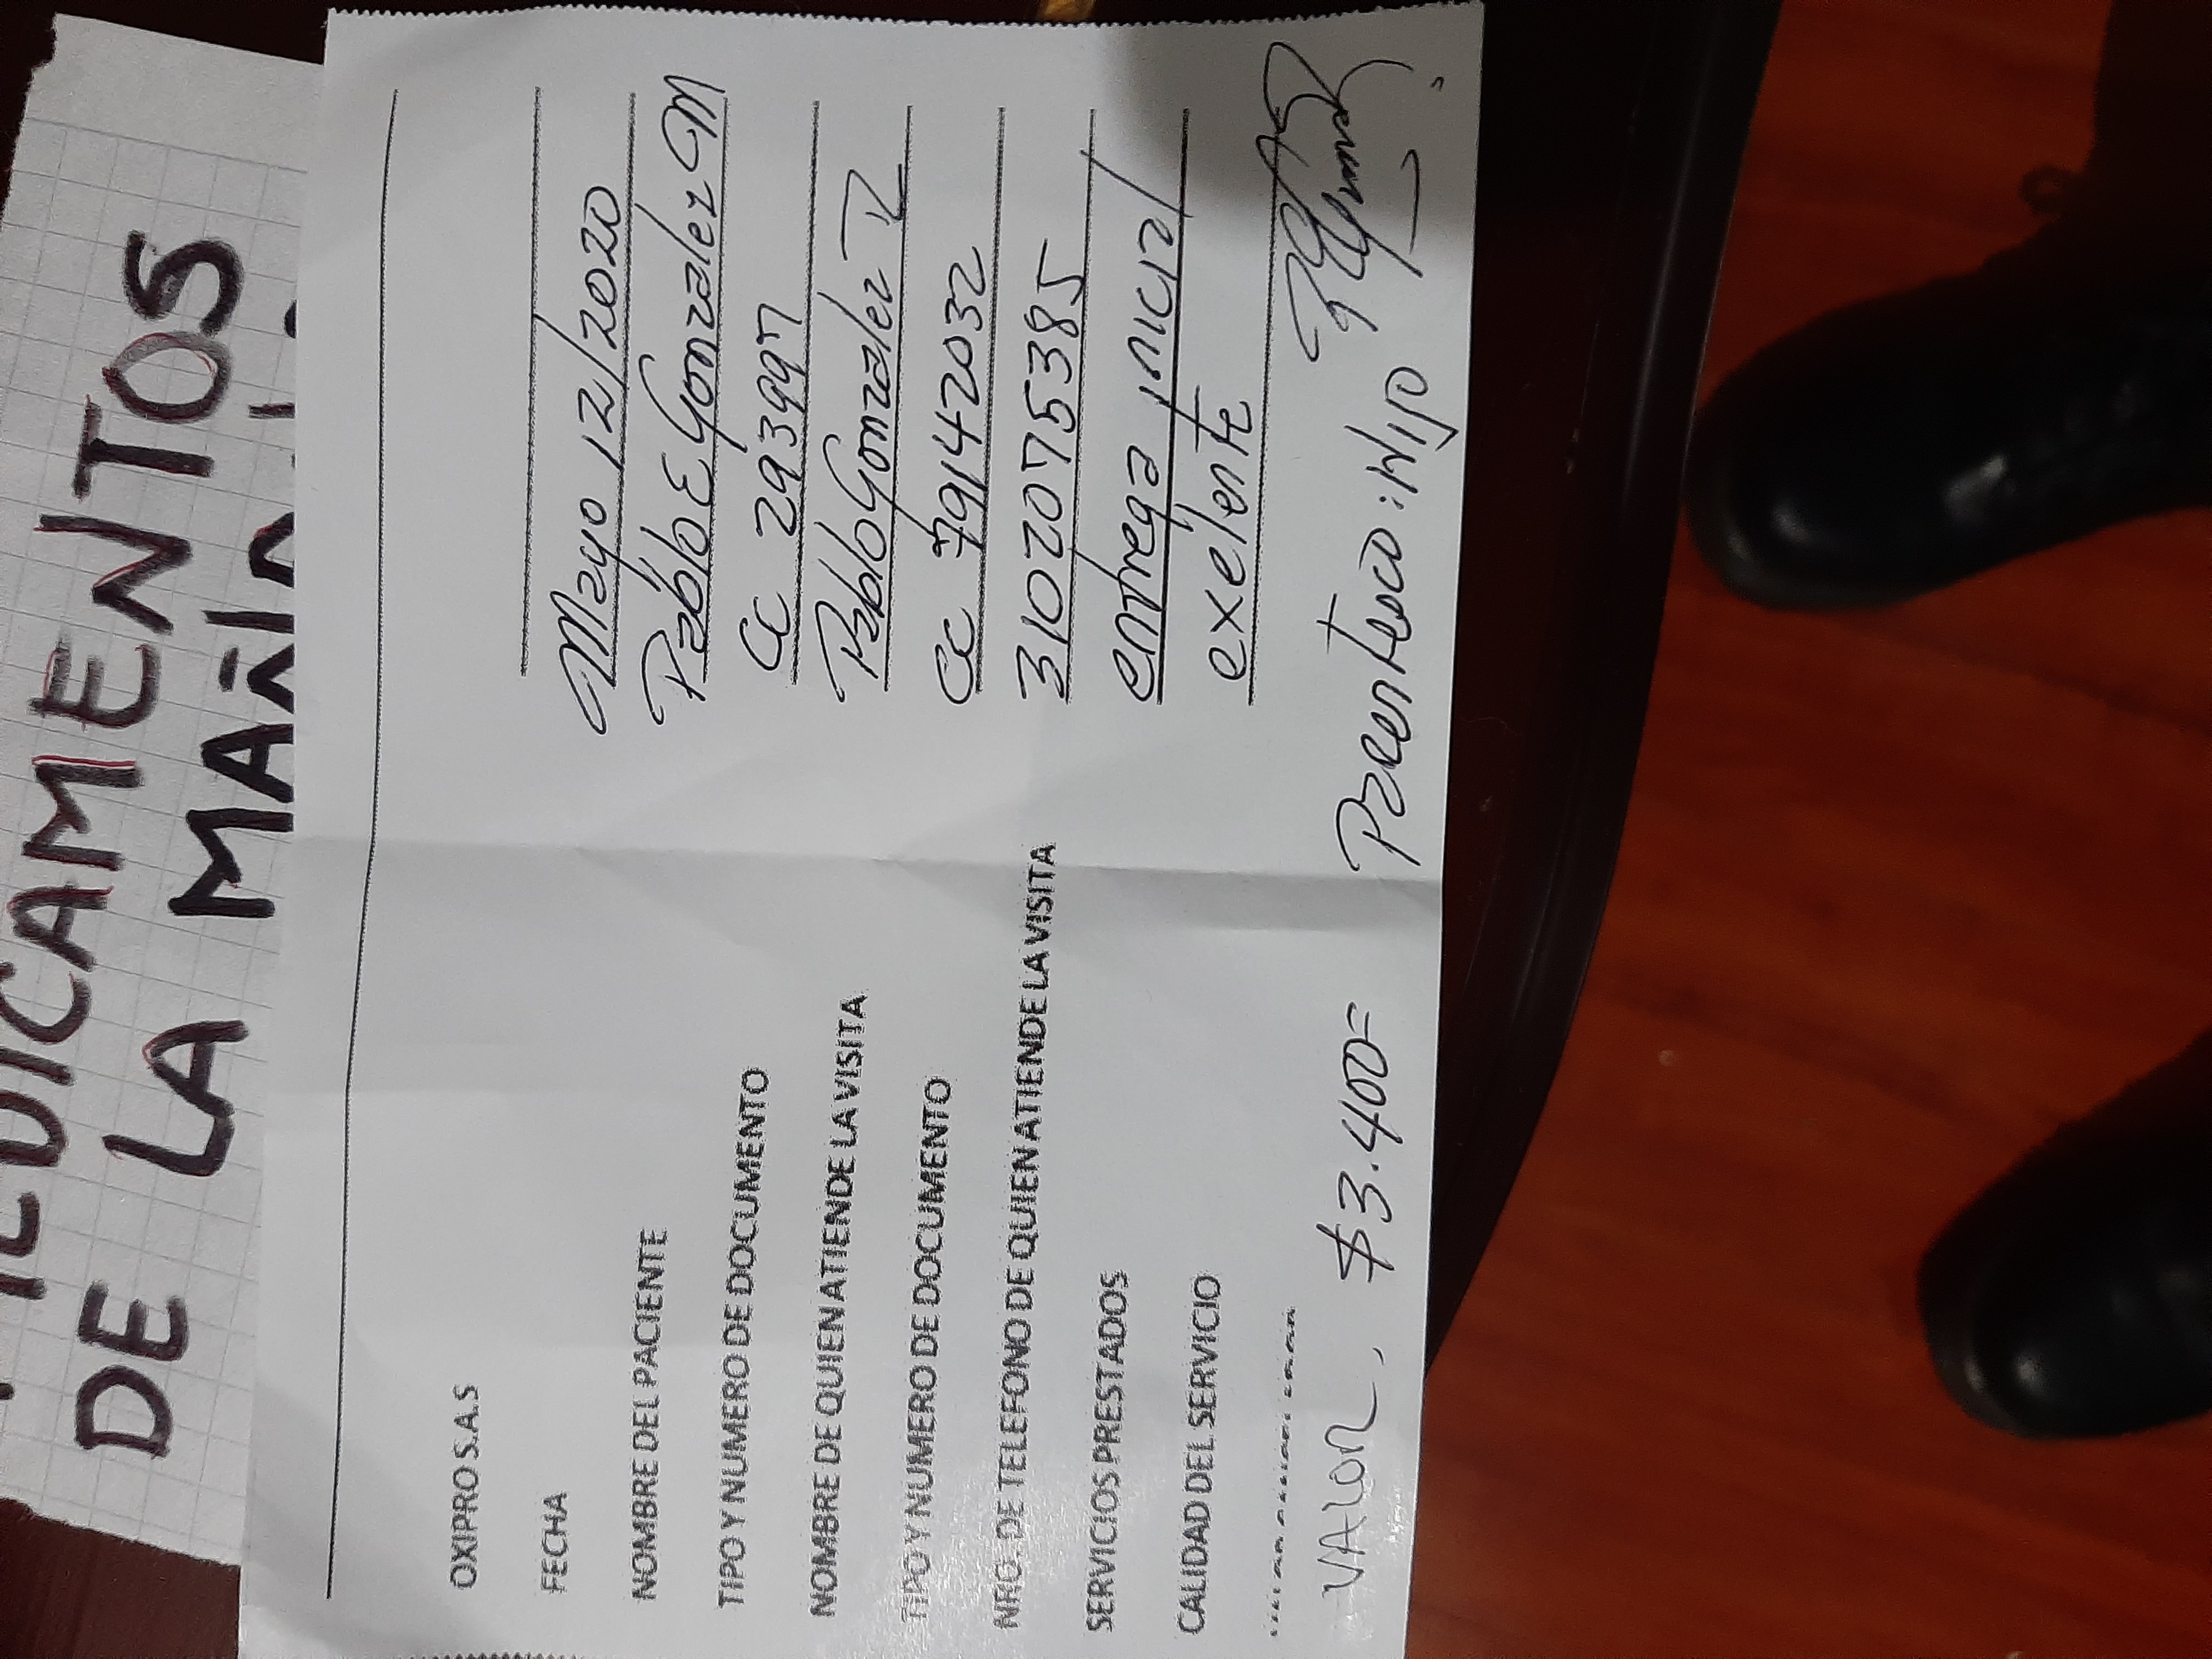 MEDICAMENTOS
DE LA MAÑANA
OXIPRO S.A.S
FECHA Mayo 12/2020
NOMBRE DEL PACIENTE Pablo E Gonzalez M
TIPO Y NUMERO DE DOCUMENTO CC 293997
NOMBRE DE QUIEN ATIENDE LA VISITA Pablo Gonzalez R
TIPO Y NUMERO DE DOCUMENTO CC 79142032
NRO. DE TELEFONO DE QUIEN ATIENDE LA VISITA 3102075385
SERVICIOS PRESTADOS entrega inicial
CALIDAD DEL SERVICIO exelente
VALOR, $3.400= Parentesco: Hijo